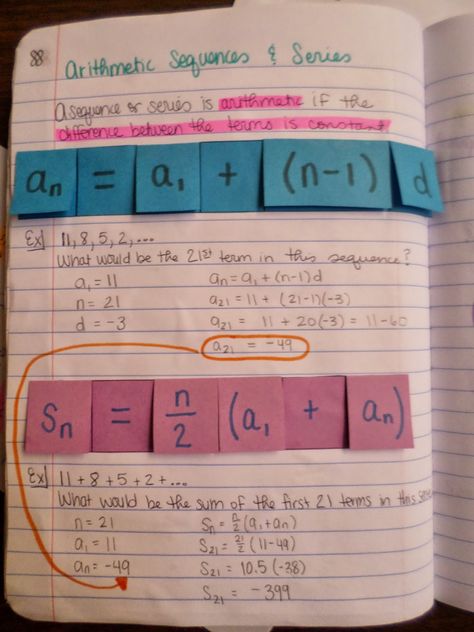 88
Arithmetic Sequences & Series
A sequence or series is arithmetic if the
difference between the terms is constant
an = a1 + (n-1) d
Ex] 11, 8, 5, 2, ...
What would be the 21st term in this sequence?
a1 = 11 an = a1 + (n-1)d
n = 21 a21 = 11 + (21-1)(-3)
d = -3 a21 = 11 + 20(-3) = 11-60
a21 = -49
Sn = n/2 (a1 + an)
Ex] 11 + 8 + 5 + 2 + ...
What would be the sum of the first 21 terms in this
n = 21 Sn = n/2 (a1 + an)
a1 = 11 S21 = 21/2 (11-49)
an = -49 S21 = 10.5 (-38)
S21 = -399